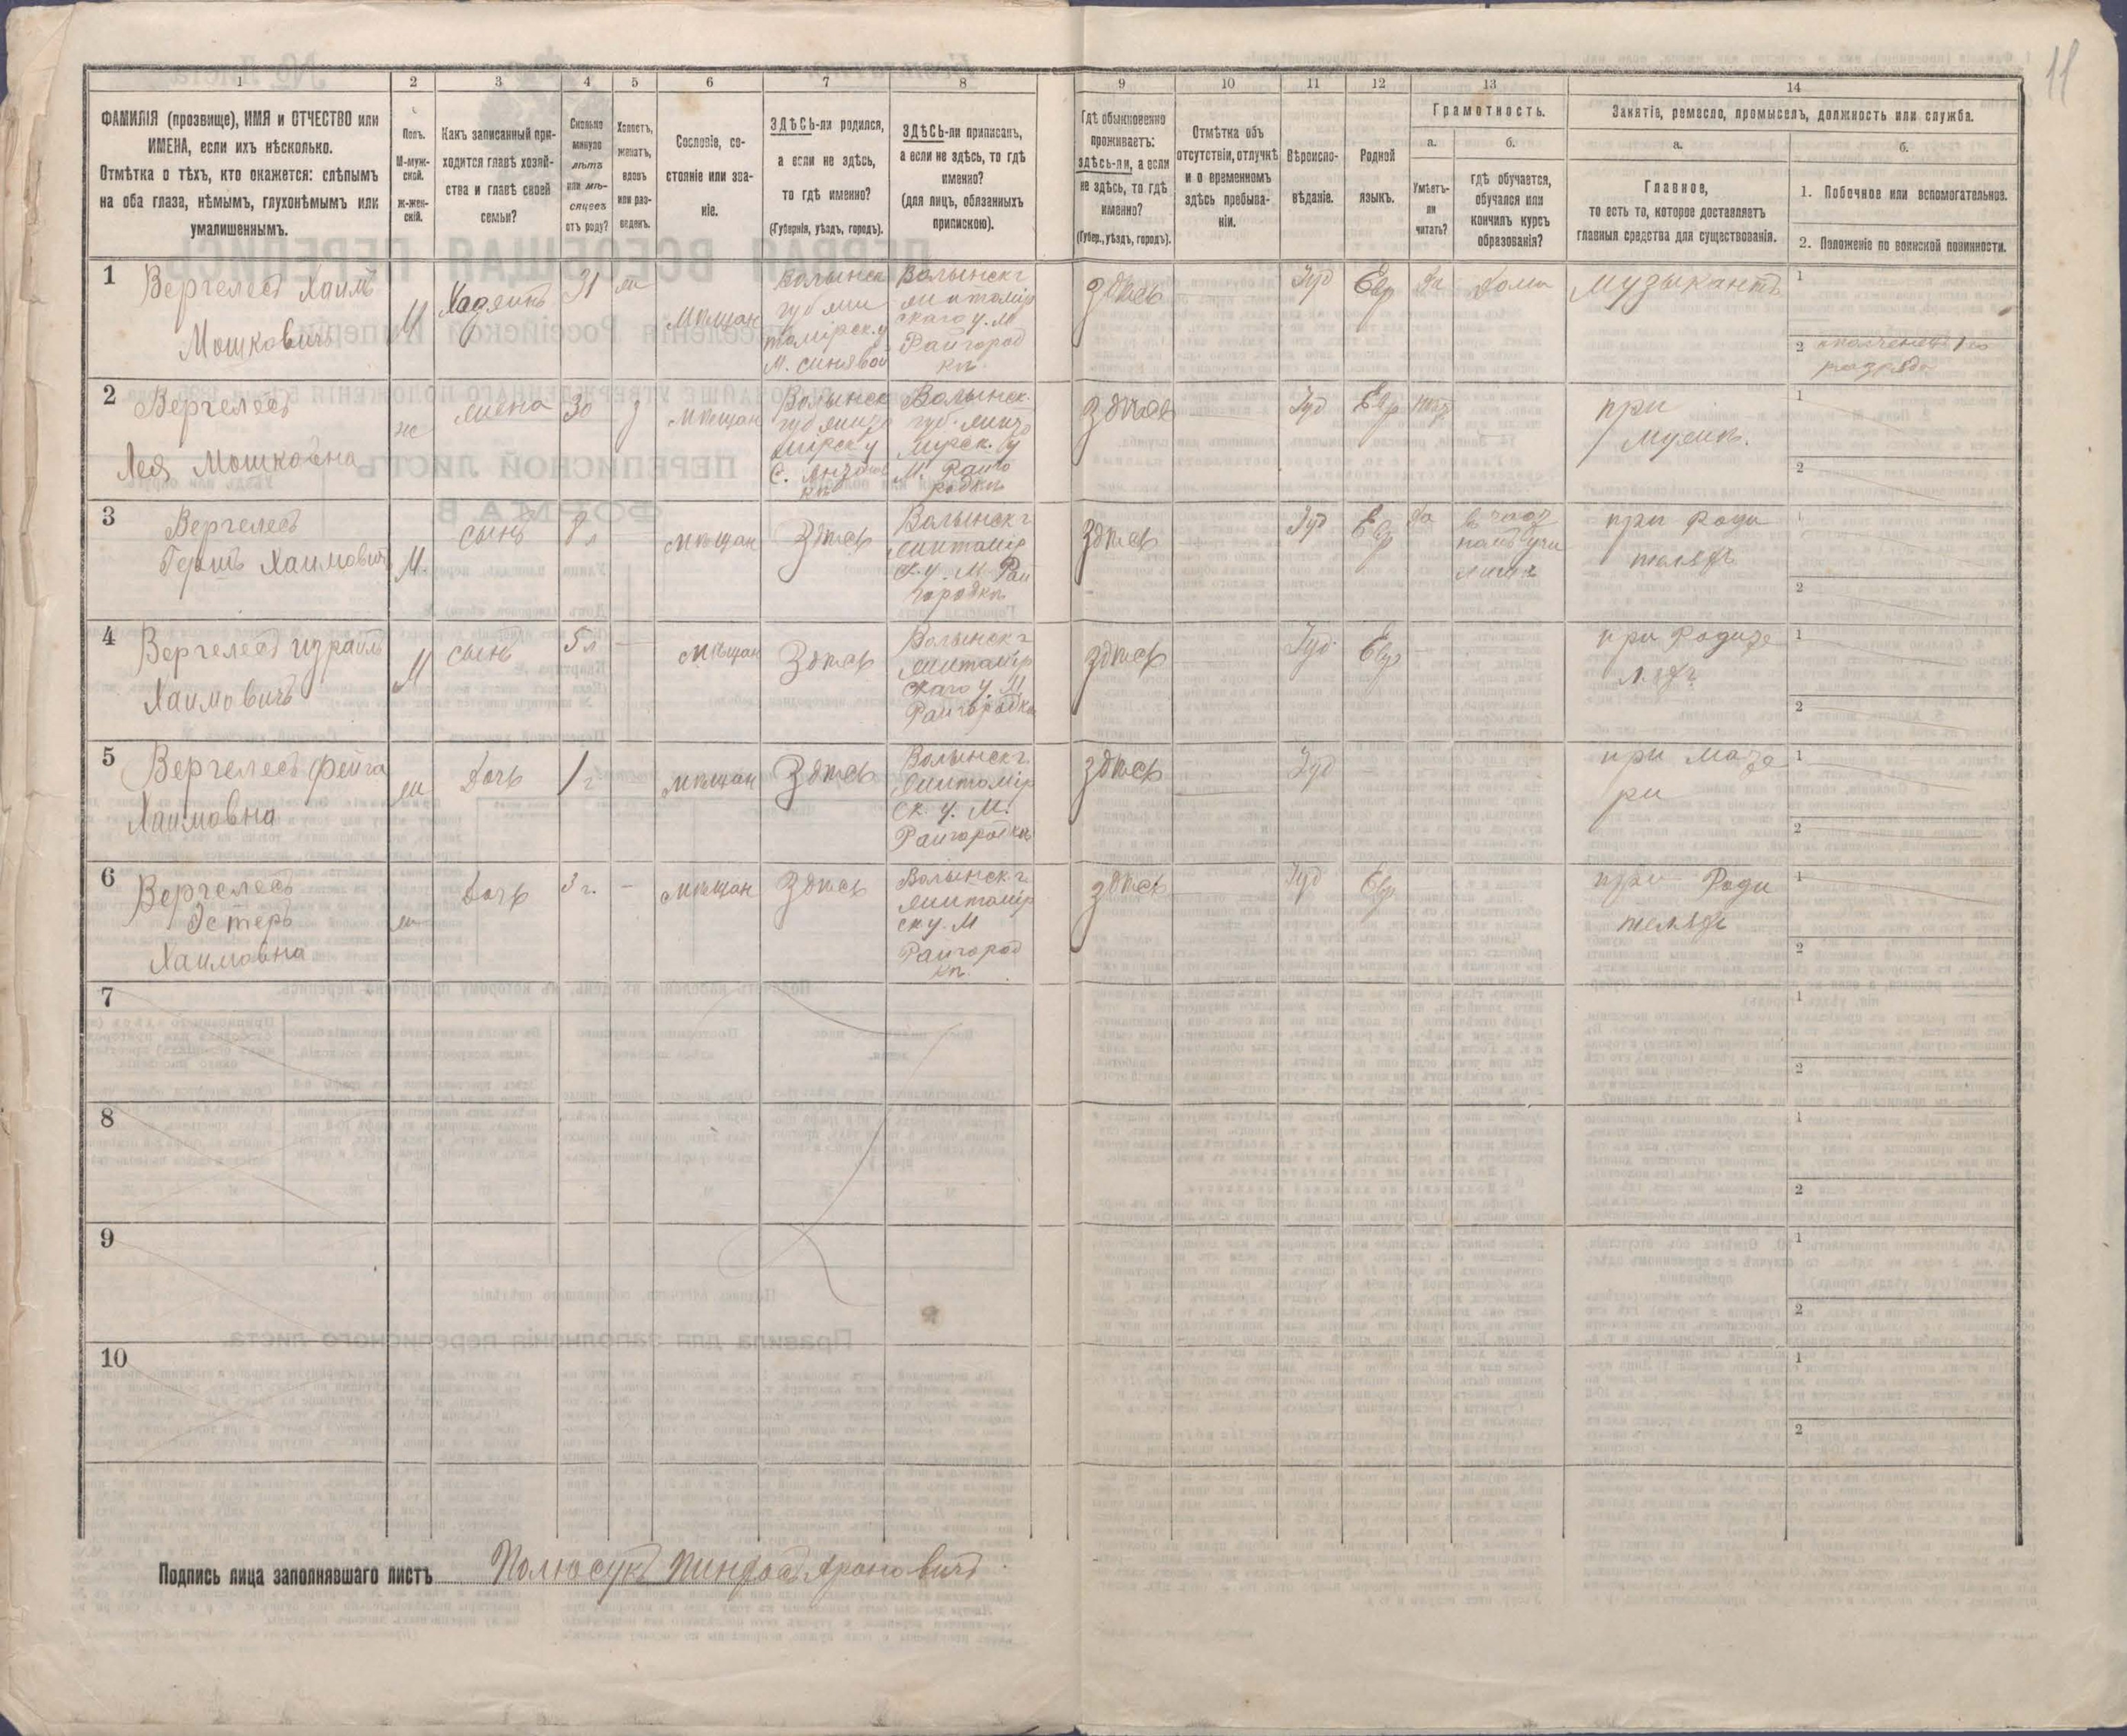 11
1
2
3
4
5
6
7
8
9
10
11
12
13
14
ФАМИЛІЯ (прозвище), ИМЯ и ОТЧЕСТВО или
ИМЕНА, если ихъ нѣсколько.
Отмѣтка о тѣхъ, кто окажется: слѣпымъ
на оба глаза, нѣмымъ, глухонѣмымъ или
умалишеннымъ.
Полъ.
М-муж-
ской.
ж-жен-
скій.
Какъ записанный при-
ходится главѣ хозяй-
ства и главѣ своей
семьи?
Сколько
минуло
лѣтъ
или мѣ-
сяцевъ
отъ роду?
Холостъ,
женатъ,
вдовъ
или раз-
веденъ.
Сословіе, со-
стояніе или зва-
ніе.
ЗДѢСЬ-ли родился,
а если не здѣсь,
то гдѣ именно?
(Губернія, уѣздъ, городъ).
ЗДѢСЬ-ли приписанъ,
а если не здѣсь, то гдѣ
именно?
(для лицъ, обязанныхъ
припискою).
Гдѣ обыкновенно
проживаетъ:
здѣсь-ли, а если
не здѣсь, то гдѣ
именно?
(Губер., уѣздъ, городъ).
Отмѣтка объ
отсутствіи, отлучкѣ
и о временномъ
здѣсь пребыва-
ніи.
Вѣроиспо-
вѣданіе.
Родной
языкъ.
Грамотность.
а.
Умѣетъ-
ли
читать?
б.
гдѣ обучается,
обучался или
кончилъ курсъ
образованія?
Занятіе, ремесло, промыселъ, должность или служба.
а.
Главное,
то есть то, которое доставляетъ
главныя средства для существованія.
б.
1. Побочное или вспомогательное.
2. Положеніе по воинской повинности.
1
Вергелесъ Хаимъ
Мошковичъ
М
Хозяинъ
31
ж
Мѣщан
Волынск
губ жи
томірск. у
М. Синявой
Волынск г
житомір
скаго у. м
Райгород
кѣ
Здѣсь
Іуд
Евр
да
дома
музыкантъ
1
2 ополченецъ 1го
разряда
2
Вергелесъ
Лея Мошковна
ж
жена
30
з
мѣщан
Волынск
губ жито
мірск у
Волынск.
губ. жито
мирск. у
М. Райго
родкѣ
Здѣсь
Іуд
Евр
при
мужѣ.
1
2
3
Вергелесъ
Гершъ Хаимович
М.
сынъ
8 л
мѣщан
Здѣсь
Волынск г
житомір
с. у. М Рай
городкѣ
Здѣсь
Іуд
Евр
да
в част
номъ учи
лищѣ
при роди
теляхъ
1
2
4
Вергелесъ израиль
Хаимовичъ
М
сынъ
5 л
мѣщан
Здѣсь
Волынск г
житомір
скаго у. М
Райгородкѣ
здѣсь
Іуд.
Евр
при родите
ляхъ
1
2
5
Вергелесъ фейга
Хаимовна
ж
дочь
1 г
мѣщан
Здѣсь
Волынск г.
житомір
ск. у. М.
Райгородкѣ
здѣсь
Іуд
при мате
ри
1
2
6
Вергелесъ
Эстеръ
Хаимовна
ж
дочь
3 г.
мѣщан
Здѣсь
Волынск г.
житомір
ск у. М
Райгород
кѣ.
здѣсь
Іуд
Евр
при Роди
теляхъ
1
2
7
1
2
8
1
2
9
1
2
10
1
2
Подпись лица заполнявшаго листъ Полюсукъ Пинхосъ Ароновичъ